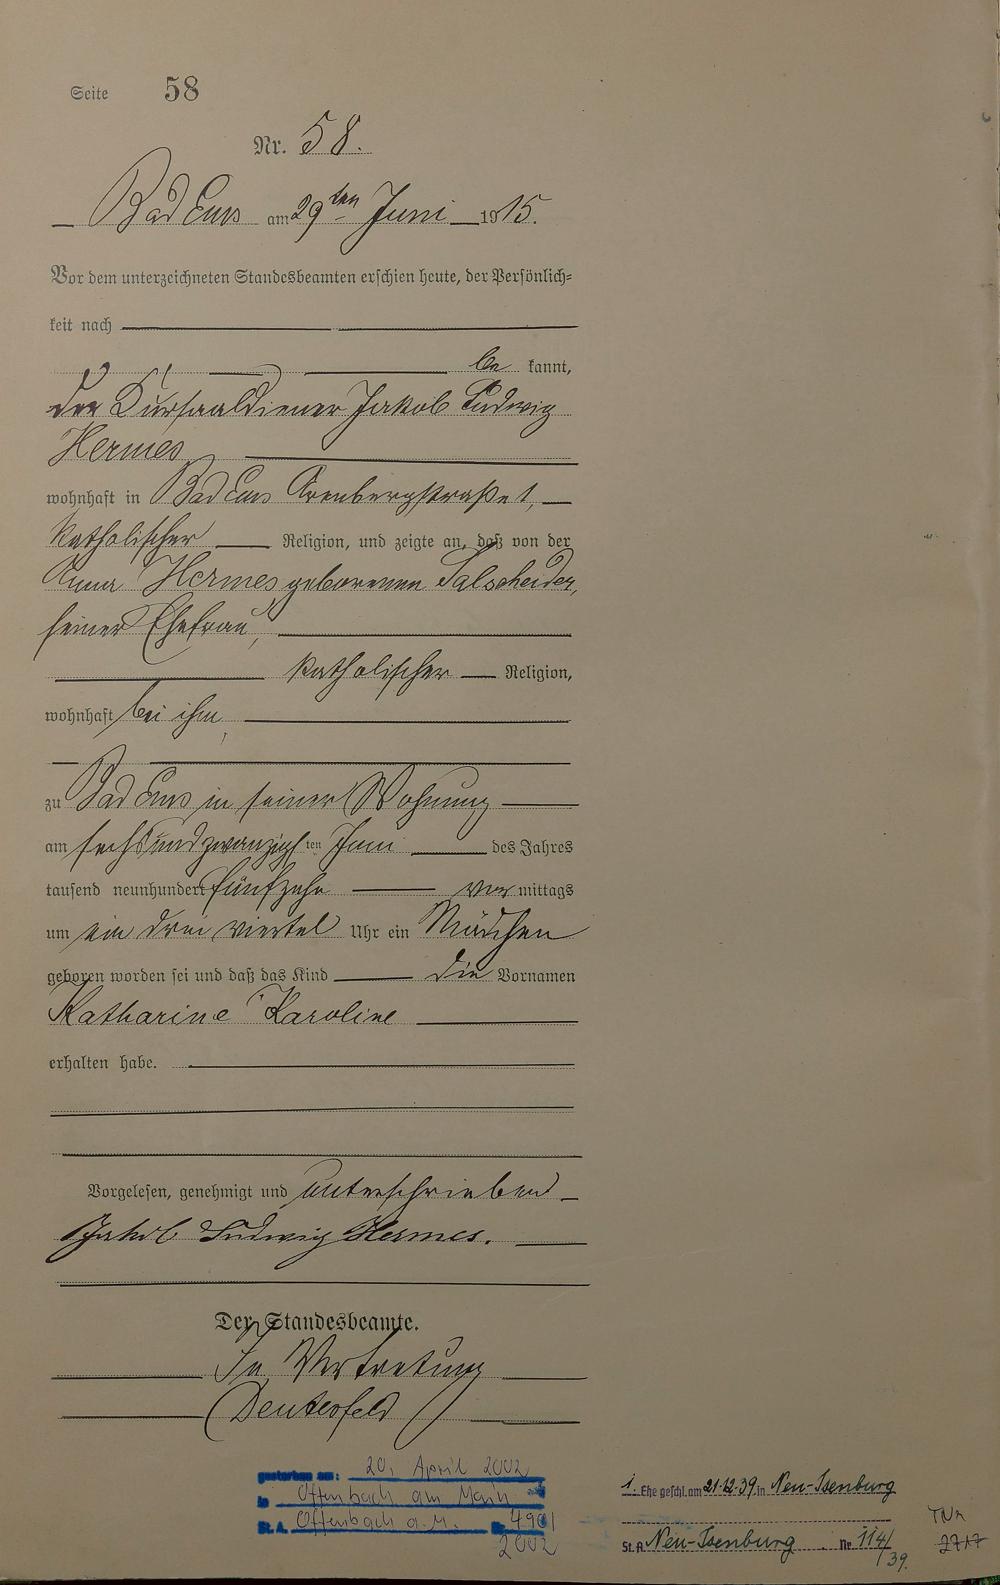 Seite 58
Nr. 58.
Bad Ems am 29ten Juni 1915.
Vor dem unterzeichneten Standesbeamten erschien heute, der Persönlich-
keit nach
be kannt,
der Kursaaldiener Jakob Ludwig
Hermes
wohnhaft in Bad Ems Arenbergstraße 1,
katholischer Religion, und zeigte an, daß von der
Anna Hermes geborenen Salscheider,
seiner Ehefrau,
katholischer Religion,
wohnhaft bei ihm,
zu Bad Ems in seiner Wohnung
am sechsundzwanzigsten Juni des Jahres
tausend neunhundert fünfzehn vor mittags
um ein drei viertel Uhr ein Mädchen
geboren worden sei und daß das Kind die Vornamen
Katharine Karoline
erhalten habe.
Vorgelesen, genehmigt und unterschrieben
Jakob Ludwig Hermes.
Der Standesbeamte.
In Vertretung
gestorben am: 20. April 2002
in Offenbach am Main
St. A. Offenbach a.M. Nr. 4901
2002
1. Ehe geschl. am 21.12.39. in Neu-Isenburg
St. A Neu-Isenburg . Nr 114/
39.